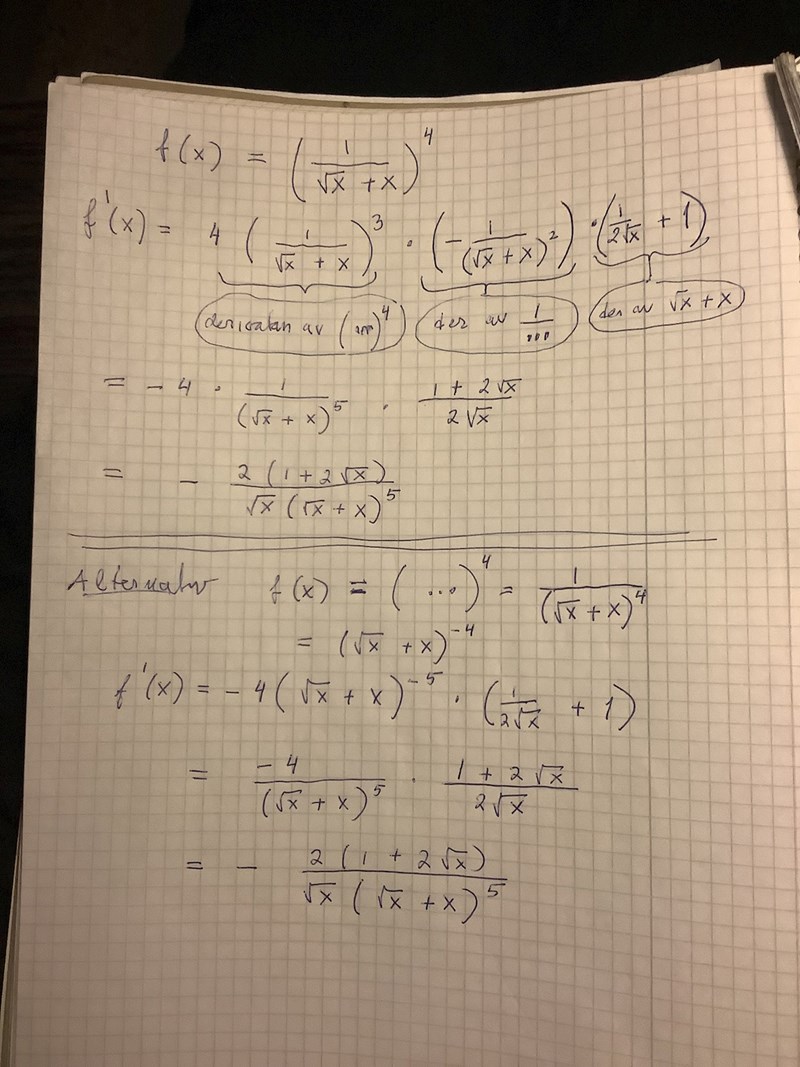 f(x) = (1/(√x + x))^4
f'(x) = 4 (1/(√x + x))^3 · (-1/(√x + x)^2) · (1/(2√x) + 1)
derivatan av (...)^4 der av 1/... der av √x + x
= - 4 · 1/(√x + x)^5 · (1 + 2√x)/(2√x)
= - 2(1 + 2√x)/(√x (√x + x)^5)
Alternativ f(x) = (...)^4 = 1/(√x + x)^4
= (√x + x)^-4
f'(x) = - 4(√x + x)^-5 · (1/(2√x) + 1)
= -4/(√x + x)^5 · (1 + 2√x)/(2√x)
= - 2(1 + 2√x)/(√x (√x + x)^5)